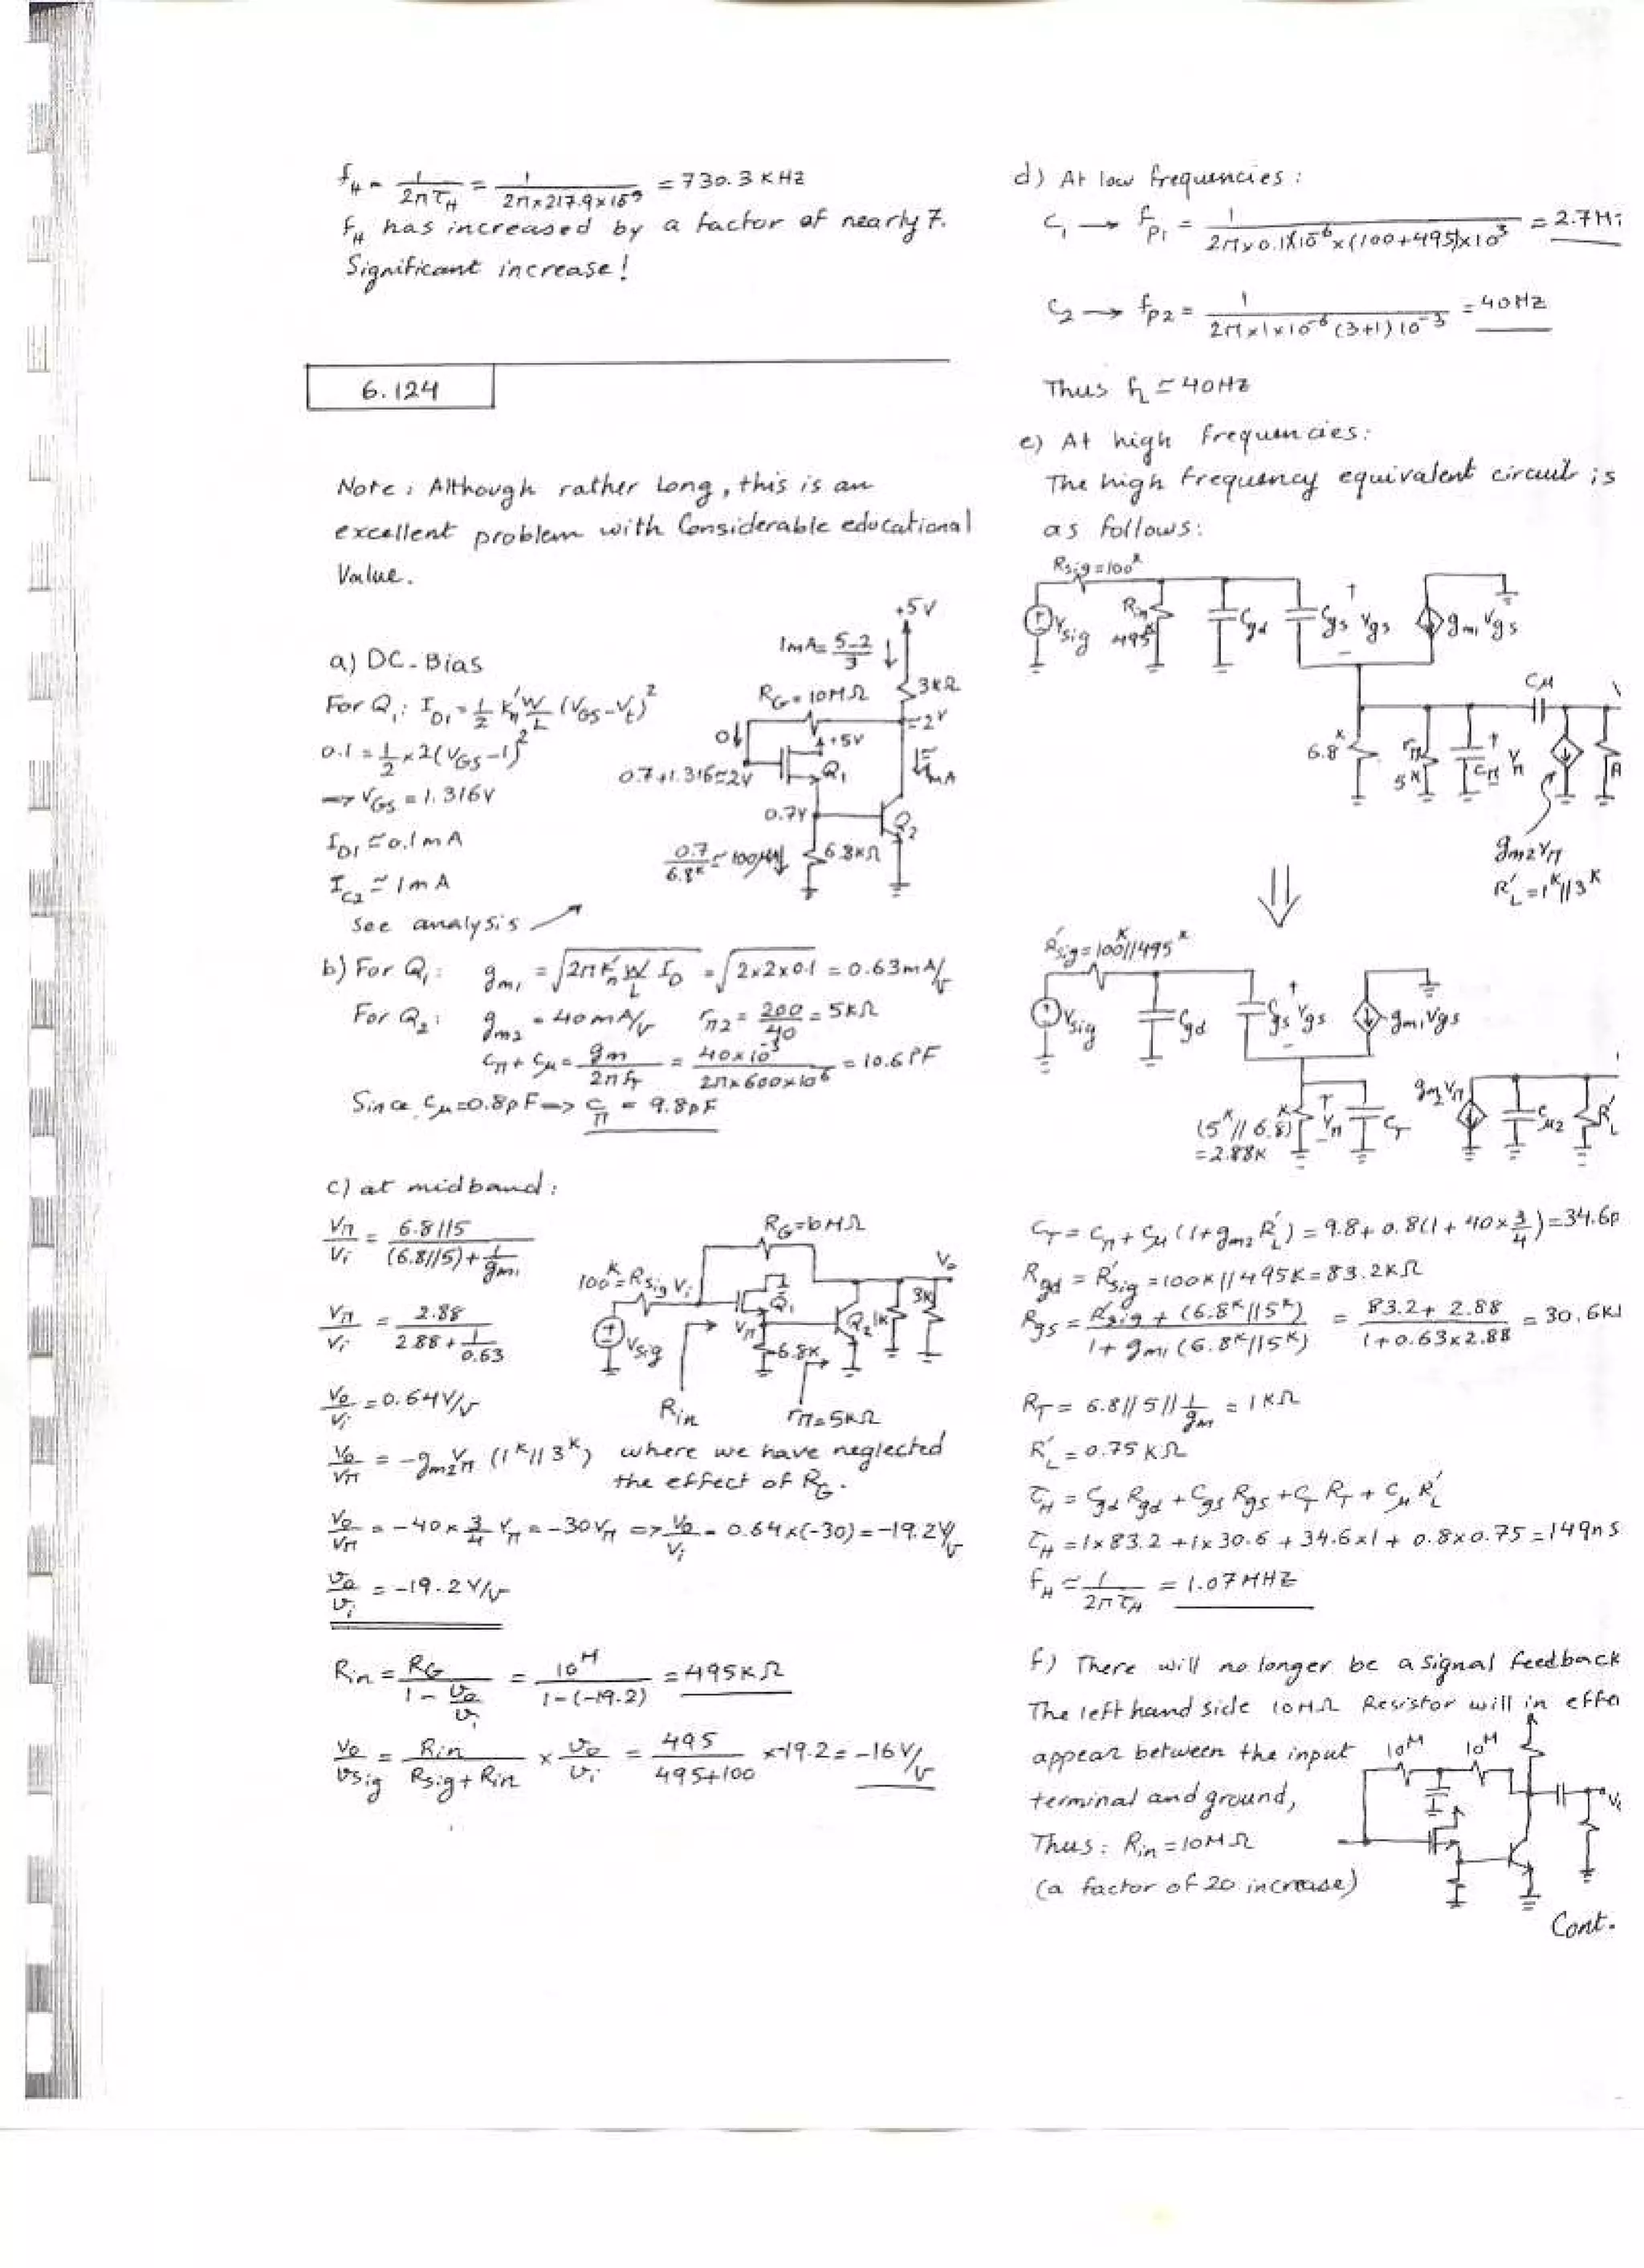 f_H = 1/(2π τ_H) = 1/(2π×217.9×10⁻⁹) = 730.3 KHz
f_H has increased by a factor of nearly 7.
Significant increase!
6.124
Note: Although rather long, this is an
excellent problem with Considerable educational
Value.
a) DC-Bias
For Q₁: I_D1 = 1/2 k'n W/L (V_GS-V_t)²
0.1 = 1/2 × 2(V_GS-1)²
⟹ V_GS = 1.316V
I_D1 ≃ 0.1mA
I_C2 ≃ 1mA
see analysis
+5V
1mA = (5-2)/3
3KΩ
R_G = 10MΩ
≃2V
0
+5V
Q₁
0.7+1.316≃2V
mA
0.7V
Q₂
0.7/6.8K ≃ 100µA
6.8KΩ
b) For Q₁: g_m1 = √(2 k'n W/L I_D) = √(2×2×0.1) = 0.63mA/V
For Q₂: g_m2 = 40mA/V r_π2 = 200/40 = 5KΩ
C_π + C_µ = g_m/(2π f_T) = 40×10⁻³/(2π×600×10⁶) = 10.6PF
Since C_µ=0.8pF ⟹ C_π = 9.8pF
c) at midband:
V_π/V_i = 6.8//5 / ((6.8//5)+1/g_m1)
V_π/V_i = 2.88/(2.88+1/0.63)
R_G=10MΩ
100K=R_sig V_i
Q₁
V_o
V_π
Q₂
1K
3K
V_sig
6.8K
R_in
r_π=5KΩ
V_o/V_i = 0.64V/V
V_o/V_π = -g_m2V_π (1K//3K) where we have neglected
the effect of R_G.
V_o/V_π = -40×3/4 V_π = -30V_π ⟹ V_o/V_i = 0.64×(-30) = -19.2V/V
v_o/v_i = -19.2V/V
R_in = R_G/(1 - v_o/v_i) = 10M/(1-(-19.2)) = 495KΩ
v_o/v_sig = R_in/(R_sig+R_in) × v_o/v_i = 495/(495+100) × -19.2 = -16V/V
d) At low frequencies:
C₁ → f_P1 = 1/(2π×0.1×10⁻⁶×(100+495)×10³) = 2.7H
C₂ → f_P2 = 1/(2π×1×10⁻⁶(3+1)10⁻³) = 40HZ
Thus f_L ≃ 40HZ
e) At high frequencies:
The high frequency equivalent circuit is
as follows:
R_sig=100K
V_sig
R_in
495K
C_gd
C_gs
+
V_gs
-
g_m1V_gs
C_µ
6.8K
r_π
5K
C_π
+
V_π
g_m2V_π
R'_L = 1K//3K
R'_sig=100K//495K
V_sig
C_gd
C_gs
+
V_gs
-
g_m1V_gs
(5K//6.8K)
=2.88K
+
V_π
-
C_T
g_m2V_π
C_µ2
R'_L
C_T = C_π + C_µ(1+g_m2R'_L) = 9.8+0.8(1+40×3/4)=34.6p
R_gd = R'_sig = 100K//495K = 83.2KΩ
R_gs = (R'_sig + (6.8K//5K))/(1+g_m1(6.8K//5K)) = (83.2+2.88)/(1+0.63×2.88) = 30.6K
R_T = 6.8//5//1/g_m = 1KΩ
R'_L = 0.75KΩ
τ_H = C_gd R_gd + C_gs R_gs + C_T R_T + C_µ R'_L
τ_H = 1×83.2+1×30.6+34.6×1+0.8×0.75=149ns
f_H ≃ 1/(2π τ_H) = 1.07MHZ
f) There will no longer be a signal feedback
The left hand side 10MΩ Resistor will in effe
appear between the input
terminal and ground,
Thus: R_in = 10MΩ
(a factor of 20 increase)
10M
10M
V
Cont.